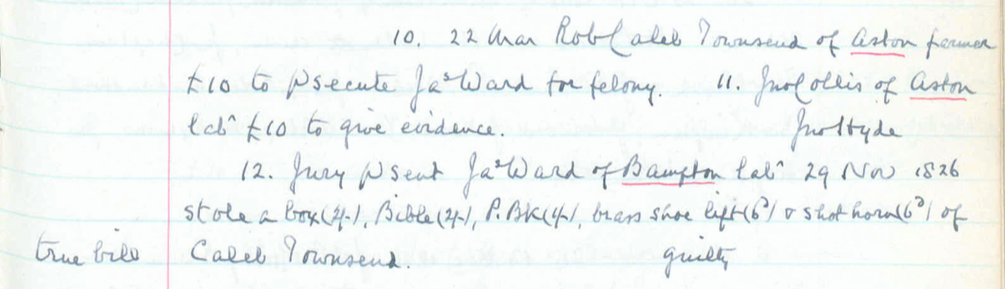 10. 22 Mar Rob Caleb Townsend of Aston farmer
£10 to Psecute Jas Ward for felony. 11. Jno Collis of Aston
labr £10 to give evidence. Jno Hyde
12. Jury Psent Jas Ward of Bampton labr 29 Nov 1826
stole a box(2/-), Bible(2/-), P.Bk(1/-), brass shoe lift(6d) & shot horn(6d) of
true bill Caleb Townsend. guilty